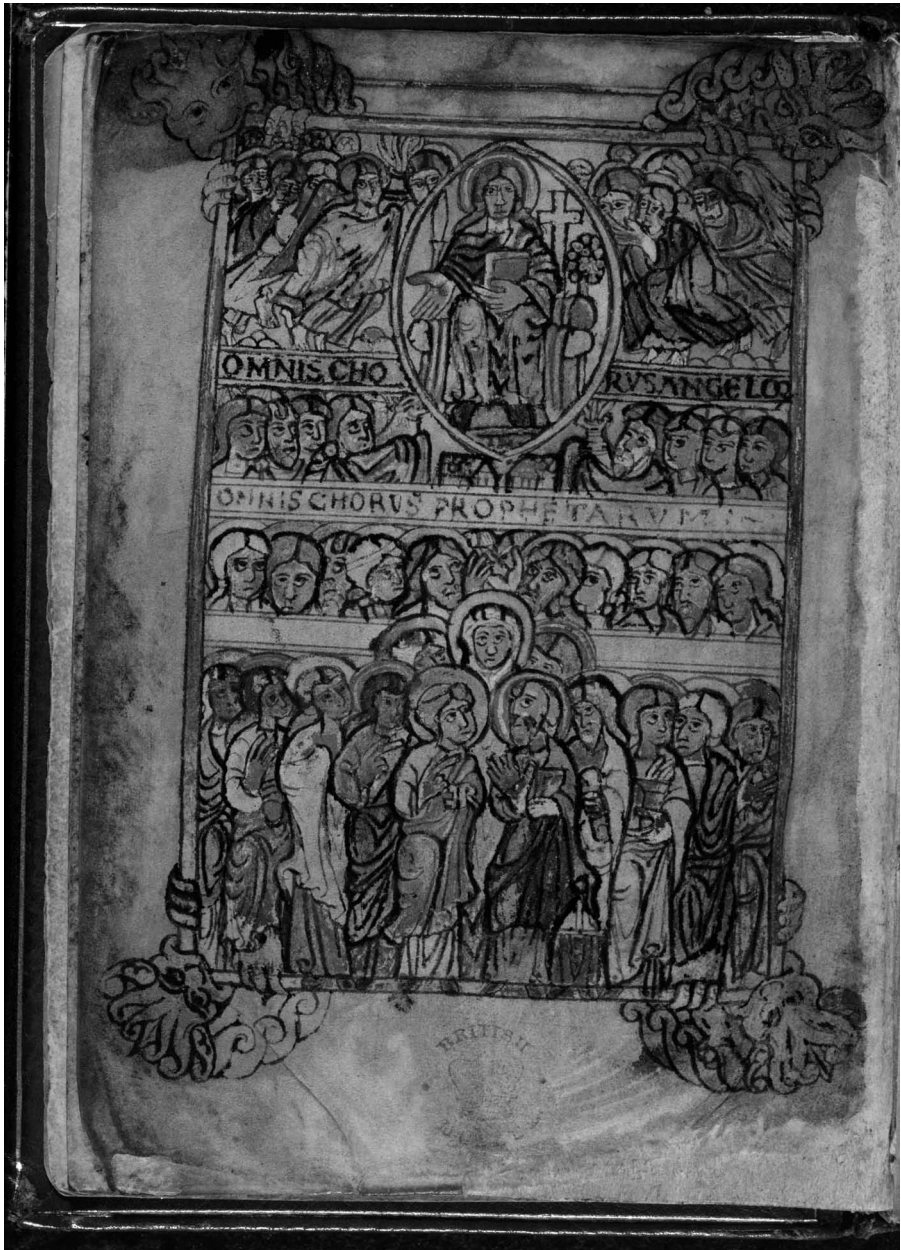 OMNIS CHO RVS ANGELOR
OMNIS CHORVS PROPHETARVM
BRITISH